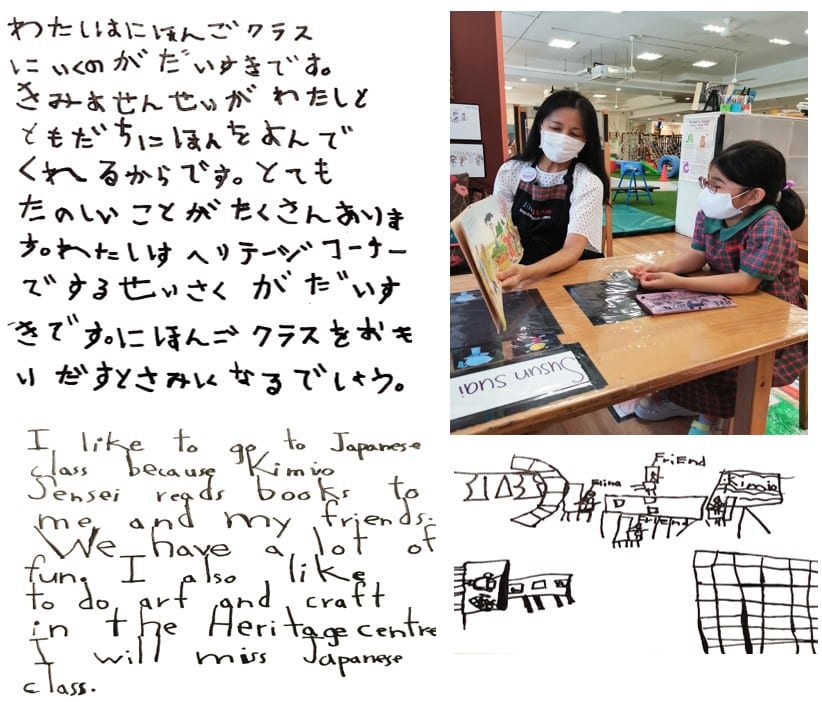 わたしはにほんごクラス
にいくのがだいすきです。
きみよせんせいがわたしと
ともだちにほんをよんで
くれるからです。とても
たのしいことがたくさんありま
す。わたしはヘリテージコーナー
でするせいさくがだいす
きです。にほんごクラスをおも
いだすとさみしくなるでしょう。
I like to go to Japanese
class because Kimiyo
Sensei reads books to
me and my friends.
We have a lot of
fun. I also like
to do art and craft
in the Heritage centre
I will miss Japanese
class.
Susun suai
FriEnd
Elina
FriEnd